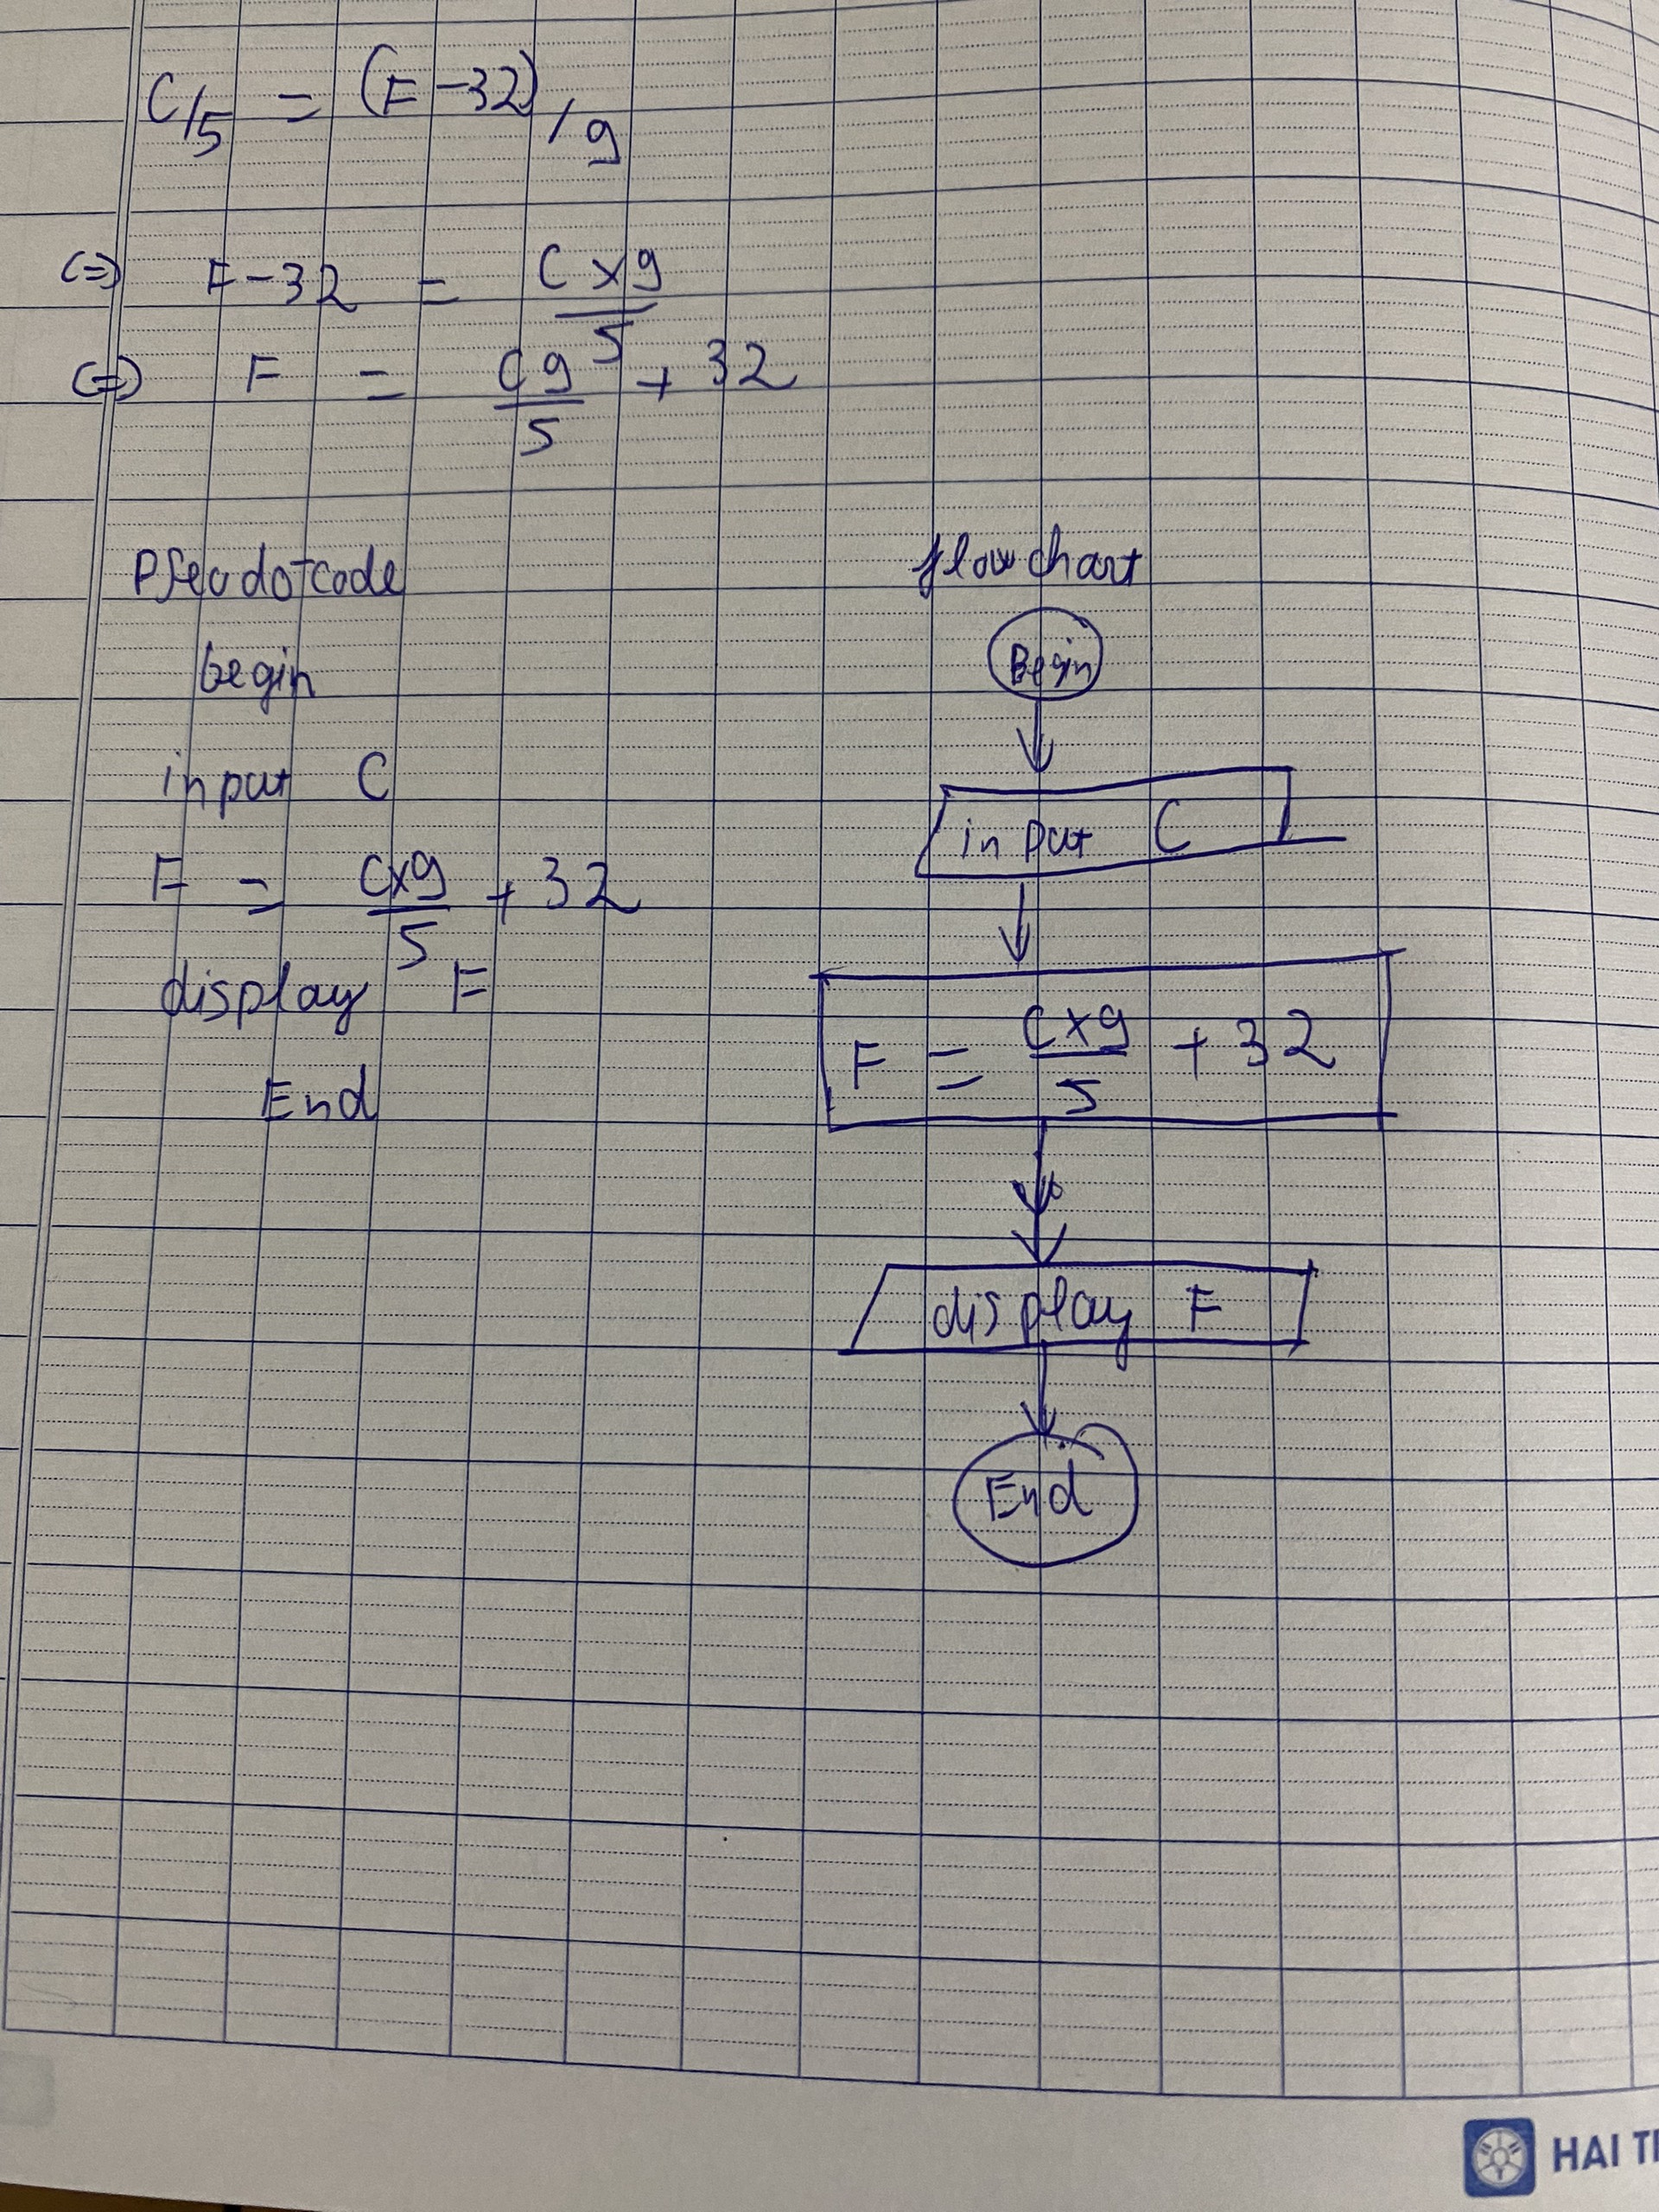 C/5 = (F-32)/9
<=> F-32 = C x 9 / 5
<=> F = C9/5 + 32
Pseudo-code
begin
input C
F = Cx9/5 + 32
display F
End
flowchart
Begin
input C
F = Cx9/5 + 32
display F
End
HAI T